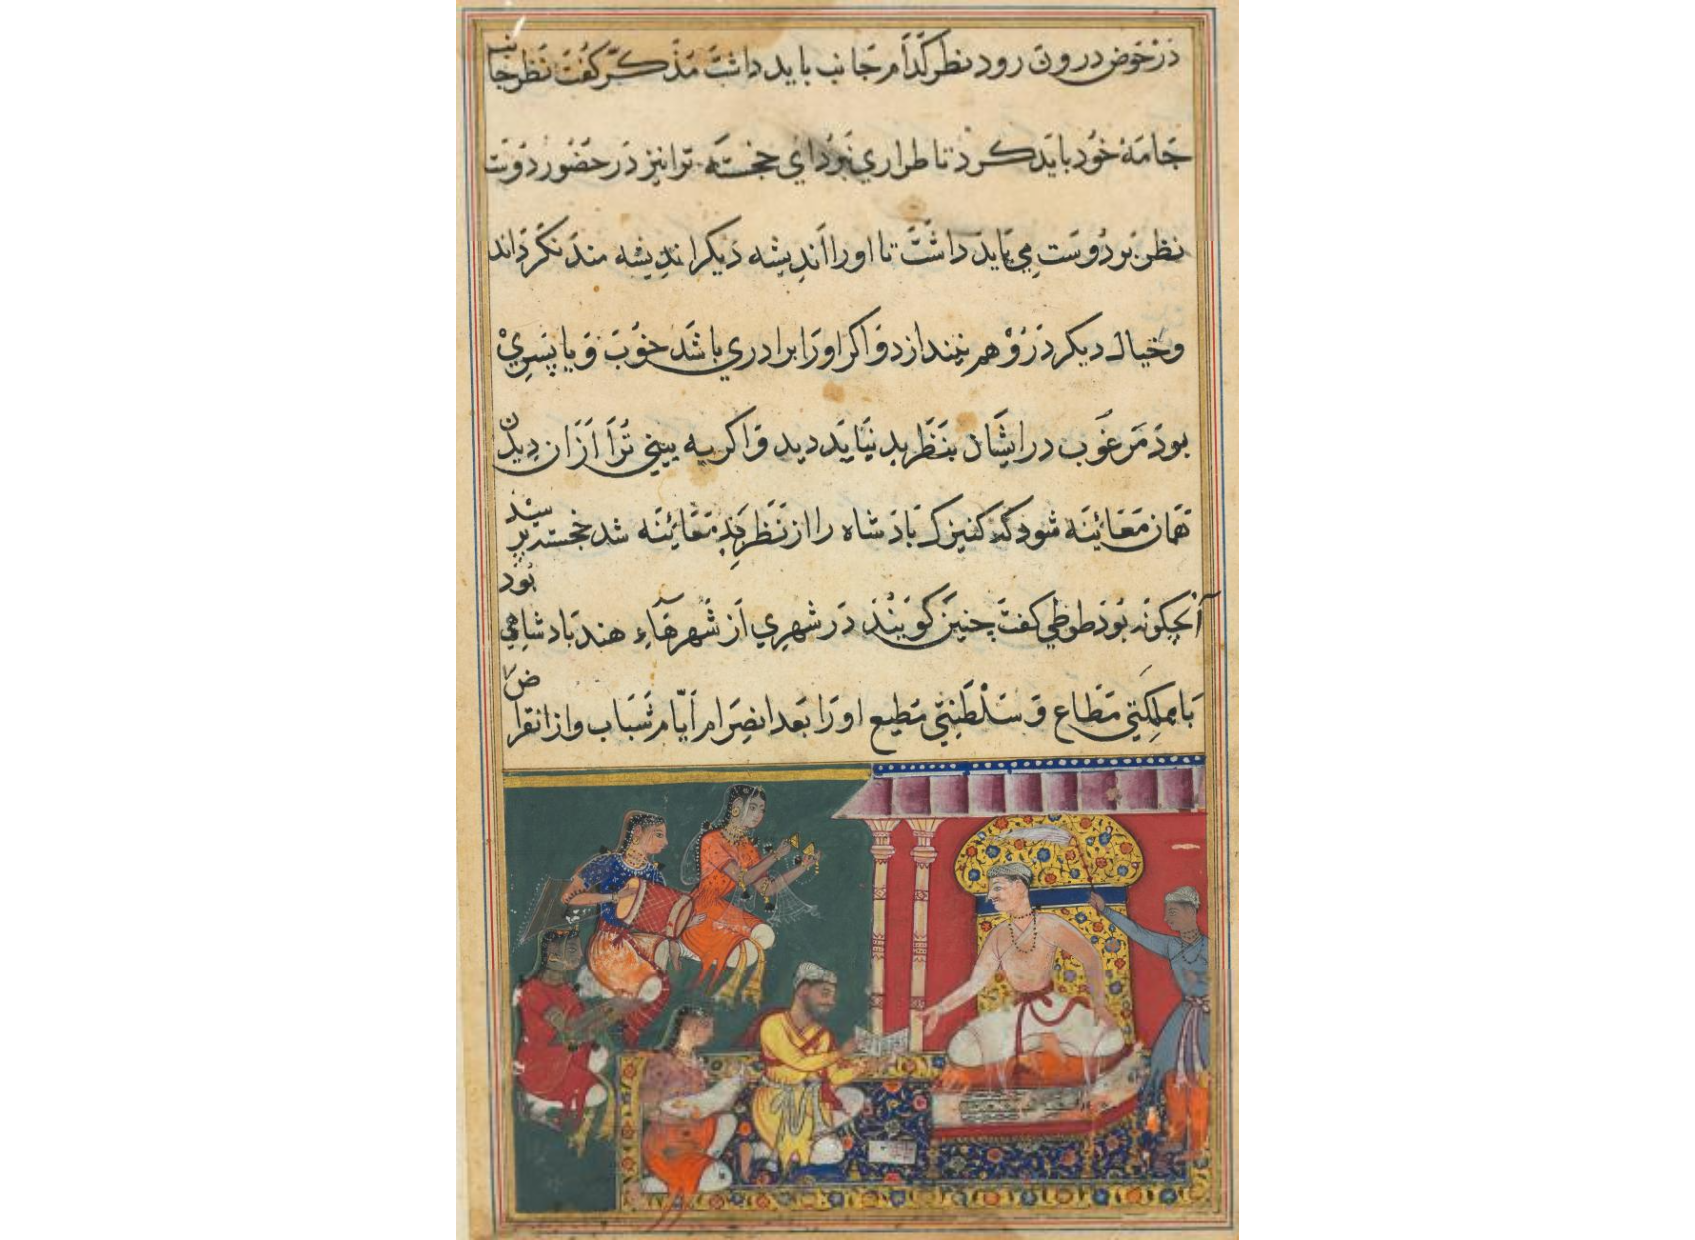 در حوض درون رود نظر کدام جانب باید داشت مذکر گفت نظر جانب
جامهٔ خود باید کرد تا طراری نبرد ای خجسته ترا نیز در حضور دوست
نظر بر دوست می باید داشت تا او را اندیشه دیکر اندیشه مند نکرداند
و خیال دیکر در وهم نیندازد و اکر او را برادری باشد خوب و یا پسری
بود مرغوب در ایشان بنظر بد نباید دید و اکر به بینی ترا از آن دیدن
همان معائینه شود که کنیزک بادشاه را از نظر بد معائنه شد خجسته پرسید
آنچکونه بود طوطی کفت چنین کویند در شهری از شهرهاء هند بادشاهی بود
با مملکتی مطاع و سلطنتی مطیع او را بعد انصرام ایام شباب و از انقراض